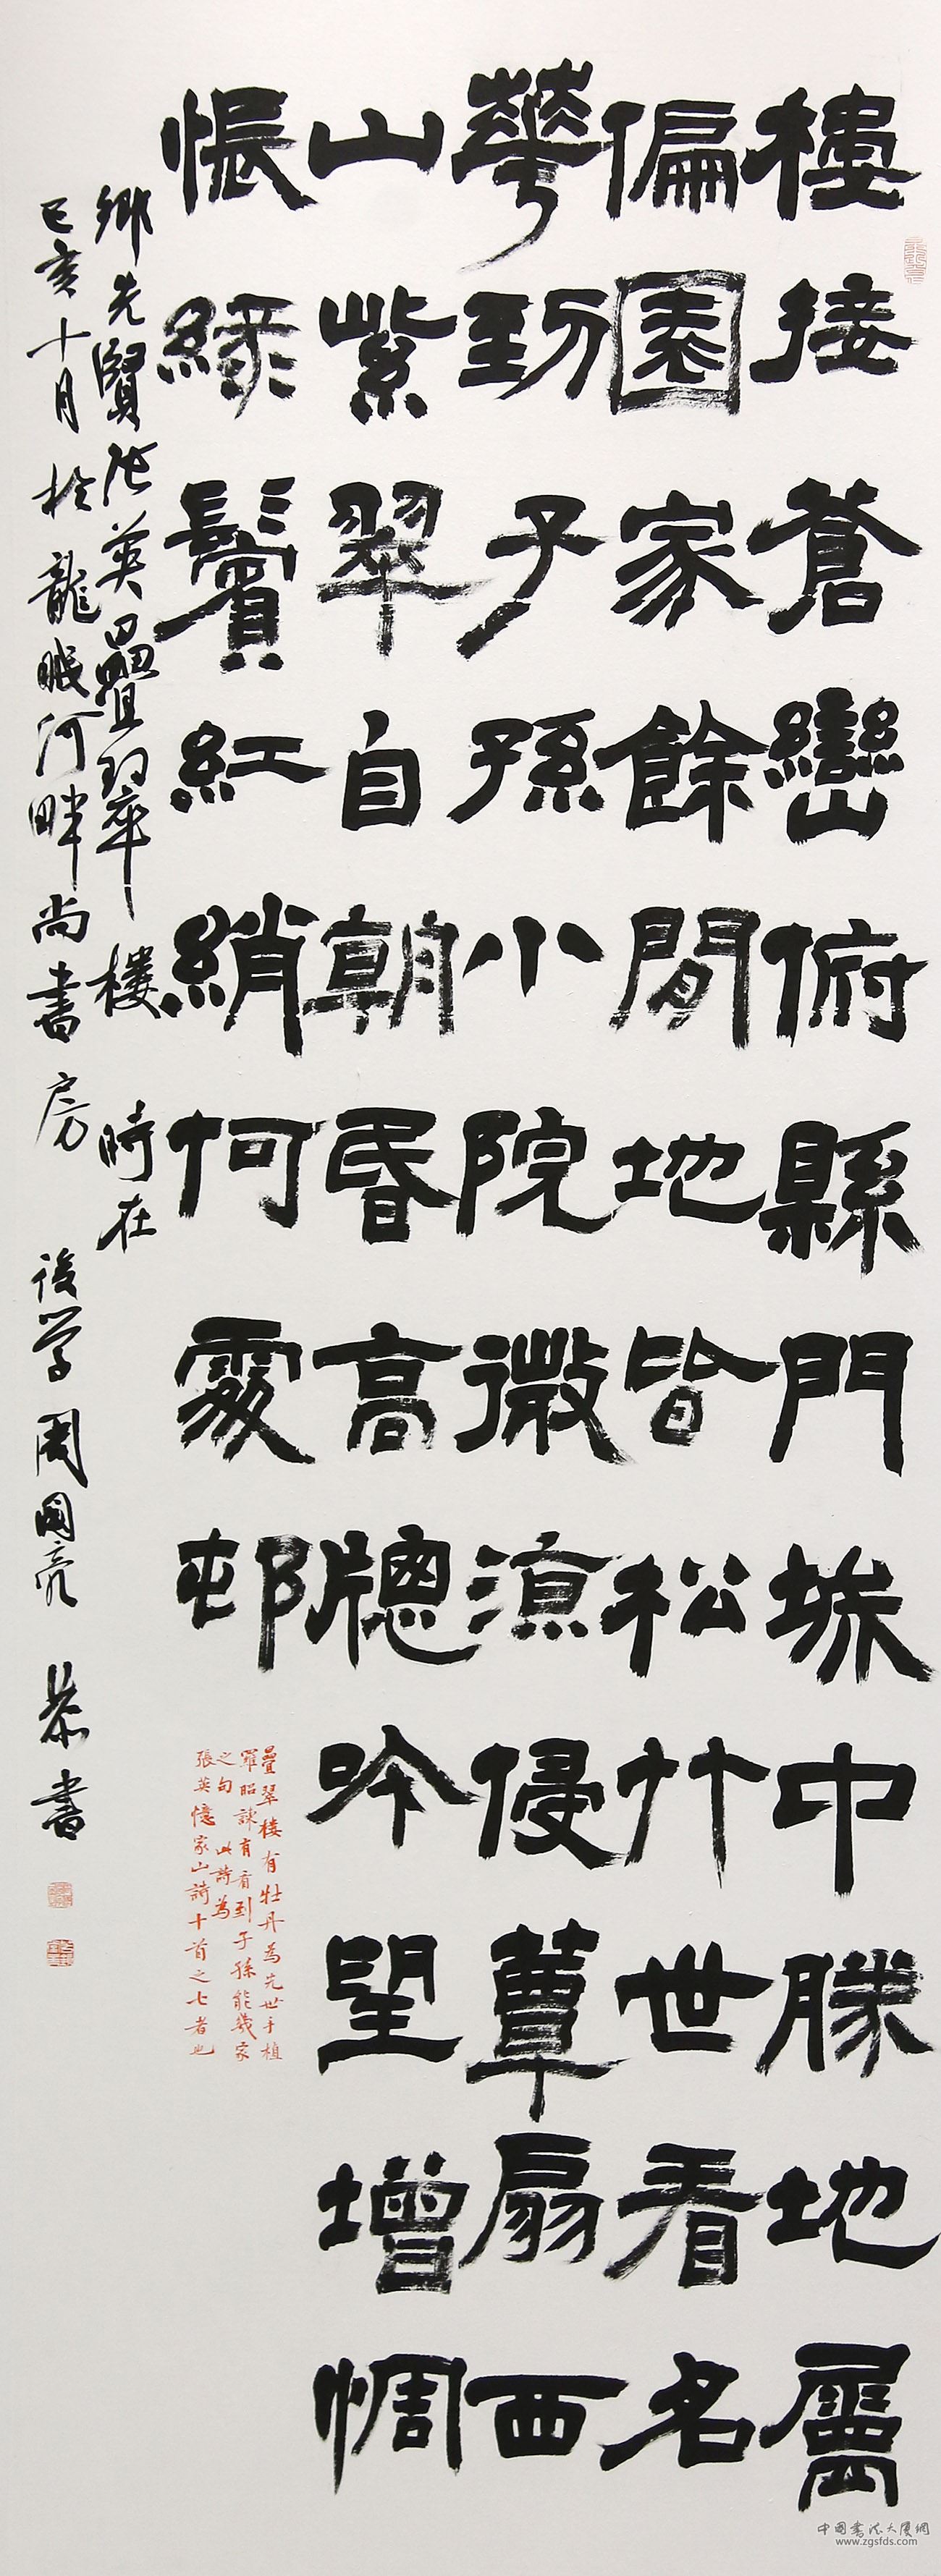 樓接蒼巒俯縣門城中勝地屬
偏園家餘閒地皆松竹世看名
華到子孫小院微涼侵蕈扇西
山紫翠自朝昏高牕吟望增惆
悵綠鬢紅綃何處邨
疊翠樓有牡丹為先世手植
羅昭諫有看到子孫能幾家
之句 此詩為
張英憶家山詩十首之七者也
鄉先賢張英疊翠樓 時在
己亥十月於龍眠河畔尚書房 後學周國亮 恭書
中國書法大厦網
www.zgsfds.com